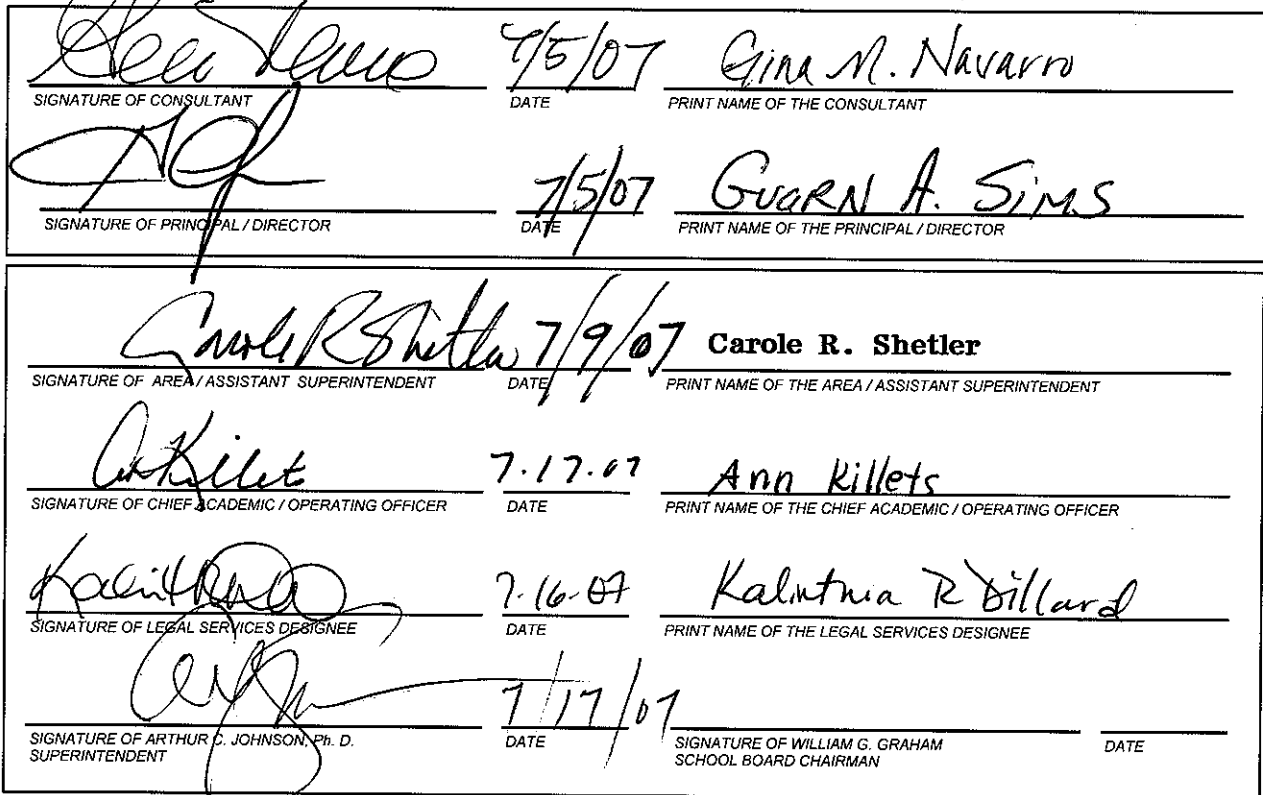 7/5/07 Gina M. Navarro
SIGNATURE OF CONSULTANT DATE PRINT NAME OF THE CONSULTANT
7/5/07 Guarn A. Sims
SIGNATURE OF PRINCIPAL / DIRECTOR DATE PRINT NAME OF THE PRINCIPAL / DIRECTOR
Carole R Shetler 7/9/07 Carole R. Shetler
SIGNATURE OF AREA / ASSISTANT SUPERINTENDENT DATE PRINT NAME OF THE AREA / ASSISTANT SUPERINTENDENT
A Killets 7.17.07 Ann Killets
SIGNATURE OF CHIEF ACADEMIC / OPERATING OFFICER DATE PRINT NAME OF THE CHIEF ACADEMIC / OPERATING OFFICER
7-16-07 Kalinthia R Dillard
SIGNATURE OF LEGAL SERVICES DESIGNEE DATE PRINT NAME OF THE LEGAL SERVICES DESIGNEE
7/17/07
SIGNATURE OF ARTHUR C. JOHNSON, Ph. D. DATE SIGNATURE OF WILLIAM G. GRAHAM DATE
SUPERINTENDENT SCHOOL BOARD CHAIRMAN